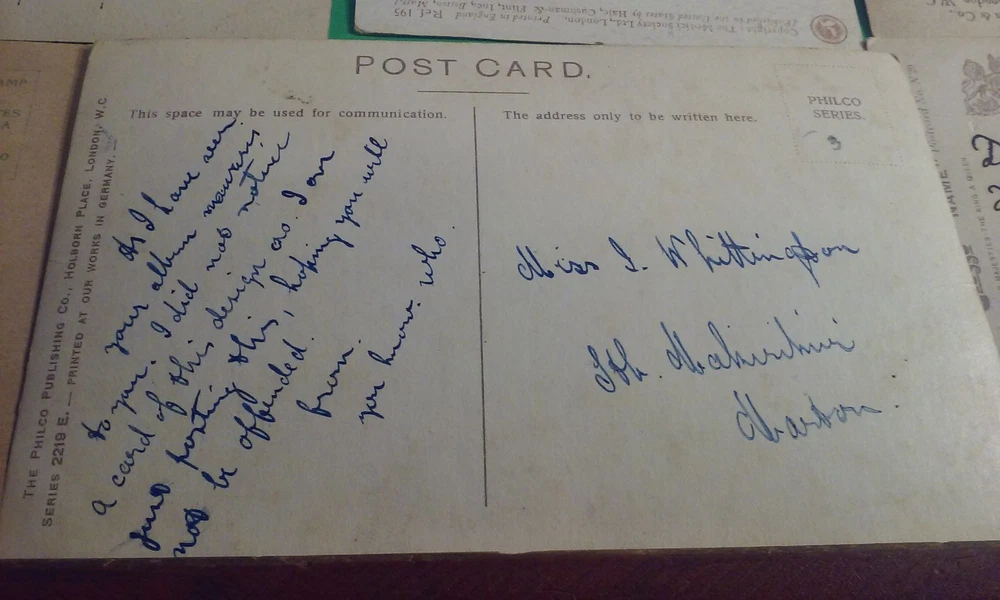 POST CARD.
This space may be used for communication.
The address only to be written here.
PHILCO
SERIES.
3
As I have seen
your album
to you. I did not notice
a card of this design so. I am
just posting this, hoping you will
not be offended.
from
you know who.
Miss S. Whittington
Marton.
THE PHILCO PUBLISHING CO., HOLBORN PLACE, LONDON, W.C
SERIES 2219 E. — PRINTED AT OUR WORKS IN GERMANY.
Copyright: The Medici Society Ltd., London. Printed in England Ref. 195
Published in the United States by Hale, Cushman & Flint, Inc., Boston, Mass.
NAME